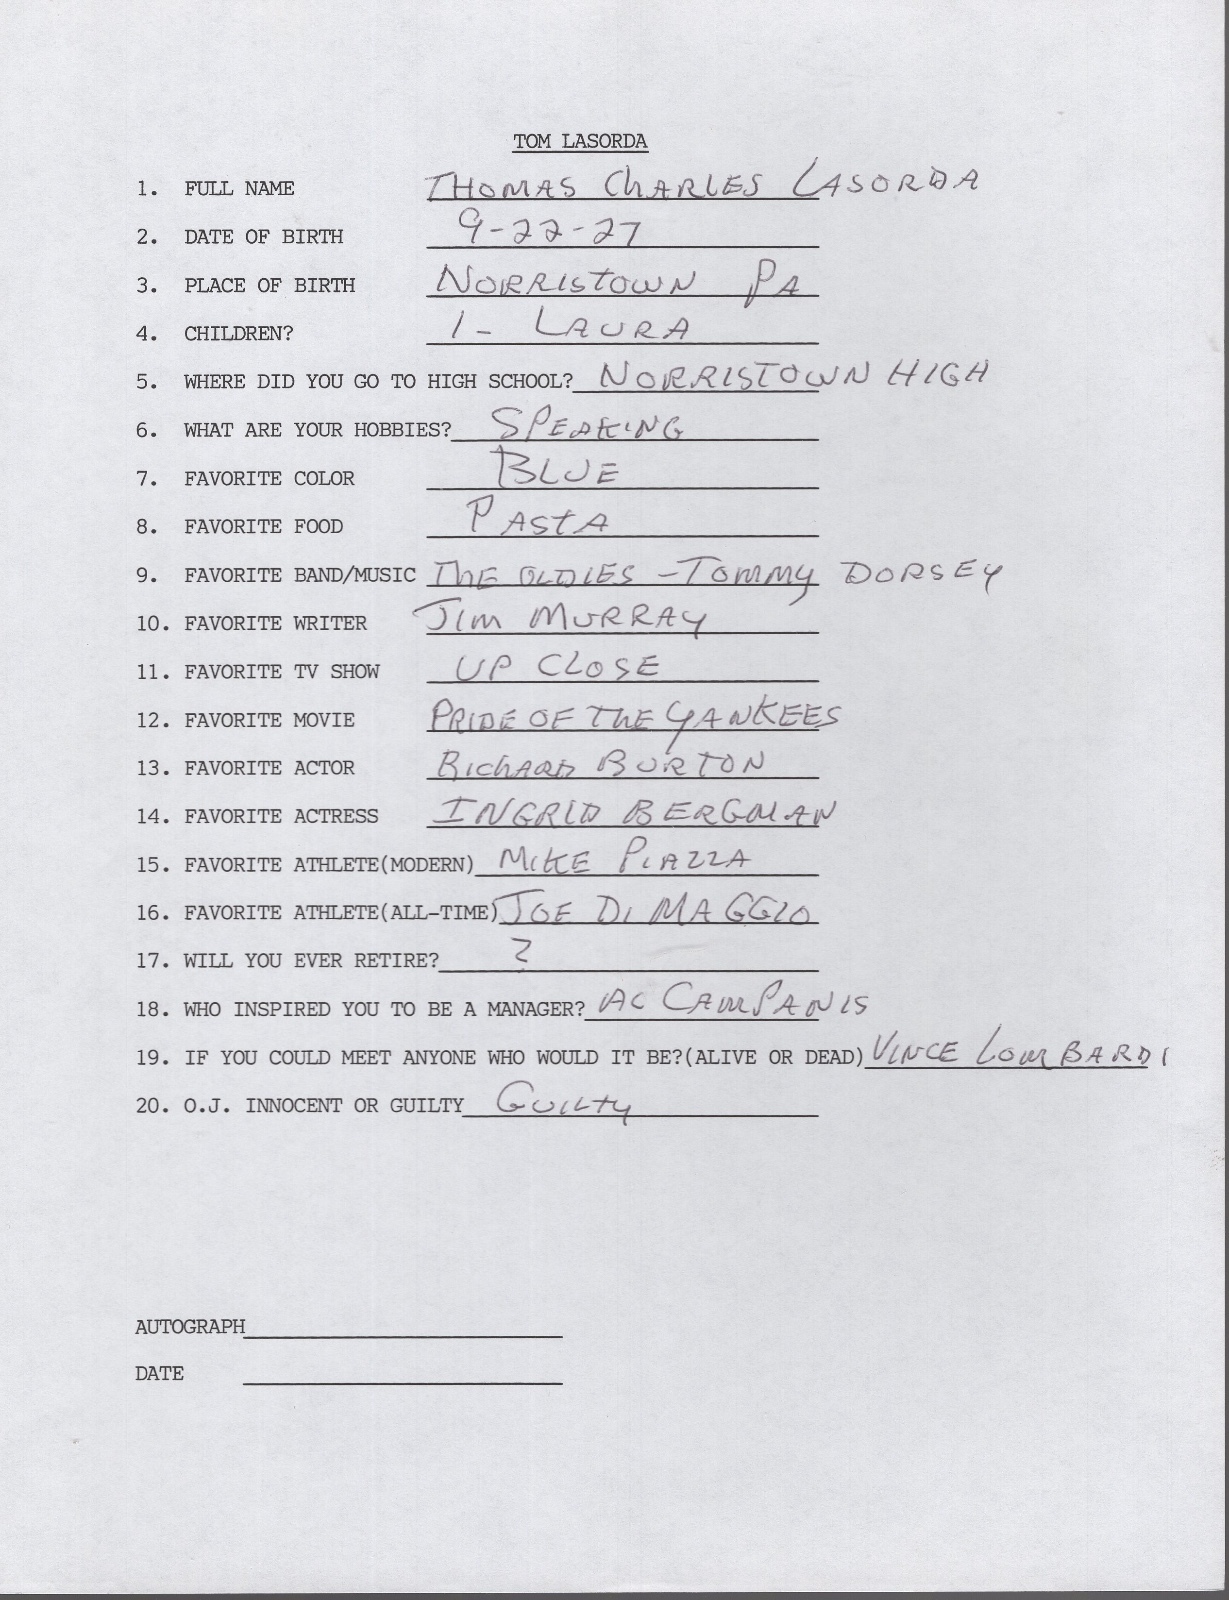 TOM LASORDA
1. FULL NAME THOMAS CHARLES LASORDA
2. DATE OF BIRTH 9-22-27
3. PLACE OF BIRTH NORRISTOWN PA
4. CHILDREN? 1- LAURA
5. WHERE DID YOU GO TO HIGH SCHOOL? NORRISTOWN HIGH
6. WHAT ARE YOUR HOBBIES? SPEAKING
7. FAVORITE COLOR BLUE
8. FAVORITE FOOD PASTA
9. FAVORITE BAND/MUSIC THE OLDIES - TOMMY DORSEY
10. FAVORITE WRITER JIM MURRAY
11. FAVORITE TV SHOW UP CLOSE
12. FAVORITE MOVIE PRIDE OF THE YANKEES
13. FAVORITE ACTOR RICHARD BURTON
14. FAVORITE ACTRESS INGRID BERGMAN
15. FAVORITE ATHLETE(MODERN) MIKE PIAZZA
16. FAVORITE ATHLETE(ALL-TIME) JOE DI MAGGIO
17. WILL YOU EVER RETIRE? ?
18. WHO INSPIRED YOU TO BE A MANAGER? AL CAMPANIS
19. IF YOU COULD MEET ANYONE WHO WOULD IT BE?(ALIVE OR DEAD) VINCE LOMBARDI
20. O.J. INNOCENT OR GUILTY GUILTY
AUTOGRAPH
DATE